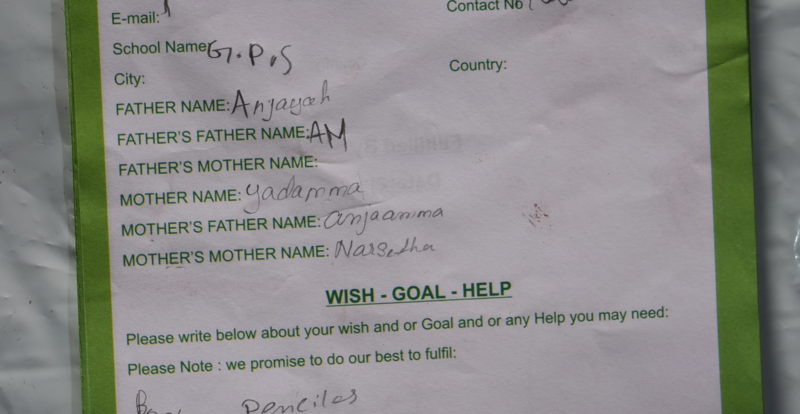 E-mail:
Contact No
School Name G.P.S
City:
Country:
FATHER NAME: Anjayah
FATHER'S FATHER NAME: AM
FATHER'S MOTHER NAME:
MOTHER NAME: yadamma
MOTHER'S FATHER NAME: anjaamma
MOTHER'S MOTHER NAME: Narsetha
WISH - GOAL - HELP
Please write below about your wish and or Goal and or any Help you may need:
Please Note : we promise to do our best to fulfil:
Penciles